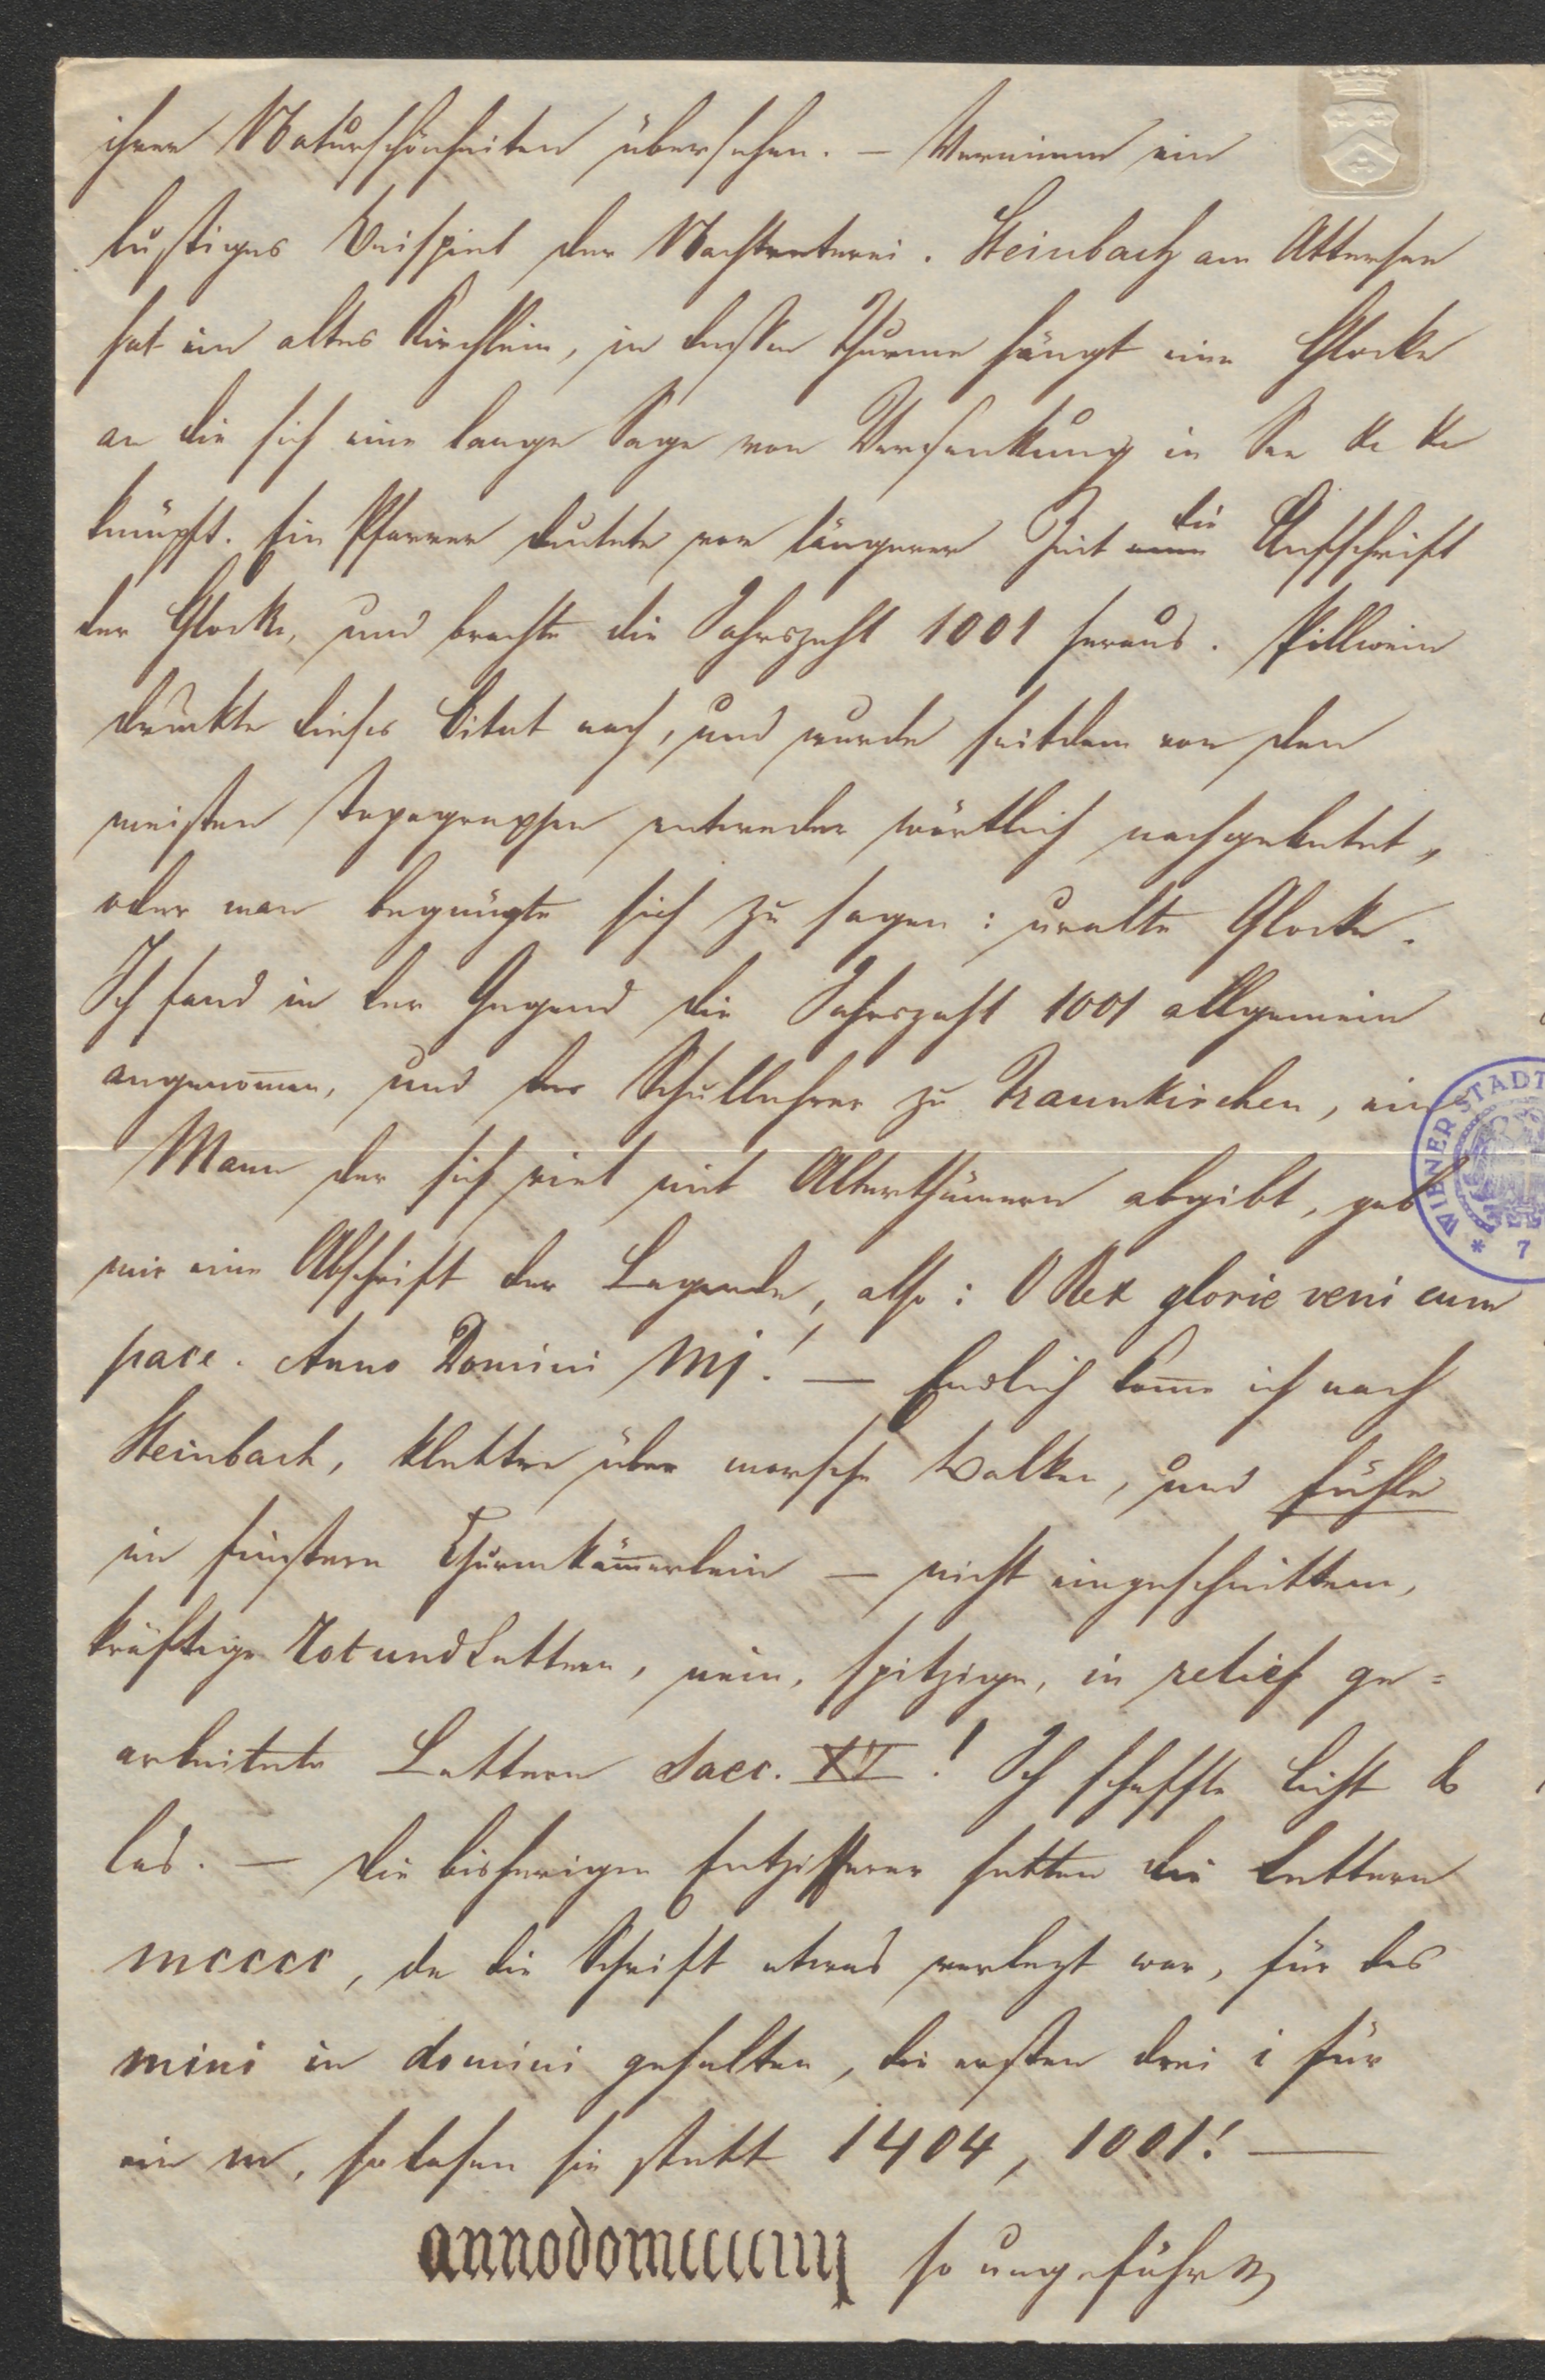 ihrer Naturschönheiten übersehen. – Vernimm ein
lustiges Beispiel der Nachtreterei. Steinbach am Attersee
hat ein altes Kirchlein, in dessen Thurme hängt eine Glocke
an die sich eine lange Sage von Versenkung in See &c &c
knüpft. Ein Pfarrer deutete vor längerer Zeit die Aufschrift
der Glocke, und brachte die Jahrszahl 1001 heraus. Pillwein
druckte dieses Citat nach, und wurde seitdem von den
meisten Topographen entweder wörtlich nachgebetet,
oder man begnügte sich zu sagen: uralte Glocke.
Ich fand in der Gegend die Jahrszahl 1001 allgemein
angenom̅en, und der Schullehrer zu Traunkirchen, ein
Mann der sich viel mit Alterthümern abgibt, gab
mir eine Abschrift der Legende, also: O Rex glorie veni cum
pace. Anno Domini Mj! – Endlich kom̅e ich nach
Steinbach, klettre über morsche Balken, und fühle
im finstern Thurmkäm̅erlein – nicht eingeschnittene,
kräftige Rotundlettern, nein, spitzige, in relief ge=
arbeitete Lettern Saec. XV! Ich schaffte Licht &
las. – Die bisherigen Entzifferer hatten die Lettern
mcccc, da die Schrift etwas verlezt war, für das
mini in domini gehalten, die ersten drei i für
ein m, so lasen sie statt 1404, 1001! –
annodomcccciiij so ungefähr
WIENER STADT
* 7